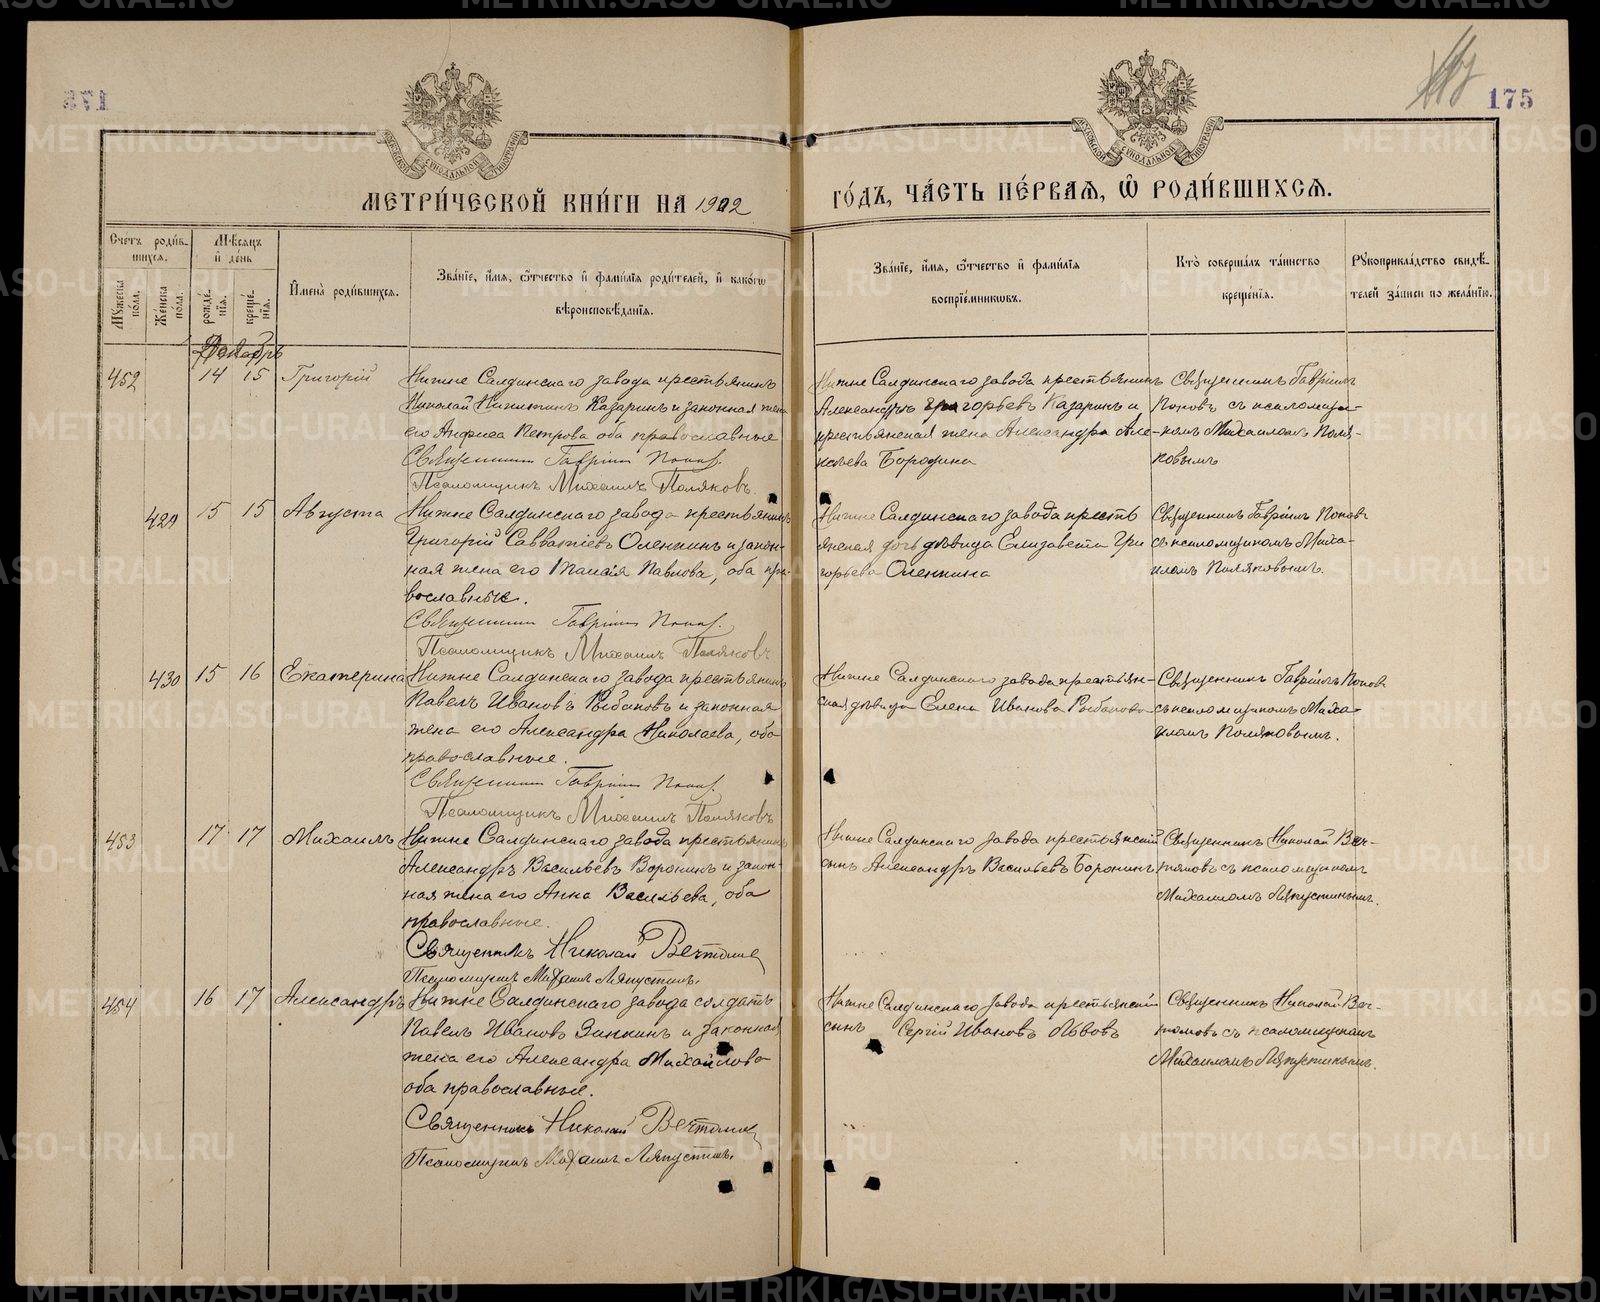 175
МЕТРИ́ЧЕСКОЙ КНИ́ГИ НА 1902 ГО́ДЪ, ЧА́СТЬ ПЕ́РВАЯ, Ѿ РОДИ́ВШИХСЯ.
Счетъ роди́вшихся.
Му́жеска пола.
Же́нска пола.
Мѣ́сяцъ и де́нь
рожде́нїя.
креще́нїя.
Имена̀ роди́вшихся.
Зва́нїе, и́мя, ѻ́тчество и фами́лїя роди́телей, и како́гѡ вѣроисповѣ́данїя.
Зва́нїе, и́мя, ѻ́тчество и фами́лїя воспрїе́мникѡвъ.
Кто̀ соверша́лъ та́инство креще́нїя.
Рꙋкоприкла́дство свидѣ́телей за́писи по жела́нїю.
Декабрь
452 14 15 Григорій
Нижне Салдинскаго завода крестьянинъ
Николай Никитинъ Казаринъ и законная жена
его Анфиса Петрова оба православные
Священникъ Гавріилъ Попов.
Псаломщикъ Михаилъ Поляковъ.
Нижне Салдинскаго завода крестьянинъ
Александръ Григорьевъ Казаринъ и
крестьянская жена Александра Але-
ксѣева Бородина
Священникъ Гавріилъ
Поповъ съ псаломщи-
комъ Михаиломъ Поля-
ковымъ
429 15 15 Августа
Нижне Салдинскаго завода крестьянинъ
Григорій Савватіевъ Оленкинъ и закон-
ная жена его Таисія Павлова, оба пра-
вославные.
Священникъ Гавріилъ Попов.
Псаломщикъ Михаилъ Поляковъ
Нижне Салдинскаго завода кресть
янская дочь дѣвица Елизавета Гри
горьева Оленкина
Священникъ Гавріилъ Поповъ
съ псаломщикомъ Миха-
иломъ Поляковымъ.
430 15 16 Екатерина
Нижне Салдинскаго завода крестьянинъ
Павелъ Ивановъ Рыбаковъ и законная
жена его Александра Николаева, оба
православные.
Священникъ Гавріилъ Попов.
Псаломщикъ Михаилъ Поляковъ
Нижне Салдинскаго завода крестьян-
ская дѣвица Елена Иванова Рыбакова
Священникъ Гавріилъ Поповъ
съ псаломщикомъ Миха-
иломъ Поляковымъ.
453 17 17 Михаилъ
Нижне Салдинскаго завода крестьянинъ
Александръ Васильевъ Воронинъ и закон-
ная жена его Анна Васильева, оба
православные.
Священникъ Николай Вечтомов
Псаломщикъ Михаилъ Ляпустинъ.
Нижне Салдинскаго завода крестьянскій
сынъ Александръ Васильевъ Воронинъ
Священникъ Николай Веч-
томовъ съ псаломщикомъ
Михаиломъ Ляпустинымъ.
454 16 17 Александръ
Нижне Салдинскаго завода солдатъ
Павелъ Ивановъ Зинкинъ и законная
жена его Александра Михайлова
оба православные.
Священникъ Николай Вечтомов
Псаломщикъ Михаилъ Ляпустинъ.
Нижне Салдинскаго завода крестьянскій
сынъ Сергій Ивановъ Львовъ
Священникъ Николай Веч-
томовъ съ псаломщикомъ
Михаиломъ Ляпустинымъ.
METRIKI.GASO-URAL.RU